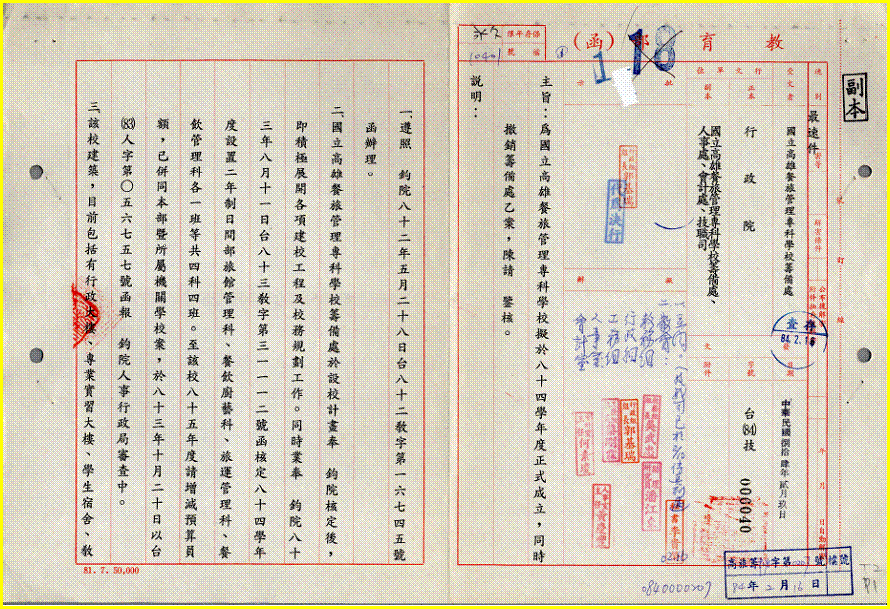 副本
教育部（函）
保存年限
檔號
永久
10401
118
速別
最速件
密等
解密條件
受文者
國立高雄餐旅管理專科學校籌備處
行文單位
正本
行政院
副本
國立高雄餐旅管理專科學校籌備處、
人事處、會計處、技職司
發文
日期
中華民國捌拾肆年貳月玖日
字號
台(84)技
000040
附件
批示
擬辦
代為決行
查存
84.2.16
教務組
行政組
工務組
人事室
會計室
主旨：為國立高雄餐旅管理專科學校擬於八十四學年度正式成立，同時
撤銷籌備處乙案，陳請　鑒核。
說明：
一、遵照　鈞院八十二年五月二十八日台八十二教字第一六七四五號
函辦理。
二、國立高雄餐旅管理專科學校籌備處於設校計畫奉　鈞院核定後，
即積極展開各項建校工程及校務規劃工作。同時業奉　鈞院八十
三年八月十一日台八十三教字第三一一一二號函核定八十四學年
度設置二年制日間部旅館管理科、餐飲廚藝科、旅運管理科、餐
飲管理科各一班等共四科四班。至該校八十五年度請增減預算員
額，已併同本部暨所屬機關學校案，於八十三年十月二十日以台
(83)人字第〇五六七五七號函報　鈞院人事行政局審查中。
三、該校建築，目前包括有行政大樓、專業實習大樓、學生宿舍、教
81.7.50,000
裝訂線
高雄籌84字第0207號檔號
84年2月16日
0840000207